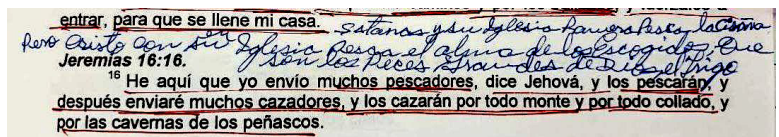 entrar, para que se llene mi casa.
Satanas y su Iglesia Ramera Pesca la Cisaña
Pero Cristo con su Iglesia Pesca el alma de los Escogidos. Que
son los Peces Grandes de Dios el Trigo
Jeremías 16:16.
16 He aquí que yo envío muchos pescadores, dice Jehová, y los pescarán, y
después enviaré muchos cazadores, y los cazarán por todo monte y por todo collado, y
por las cavernas de los peñascos.